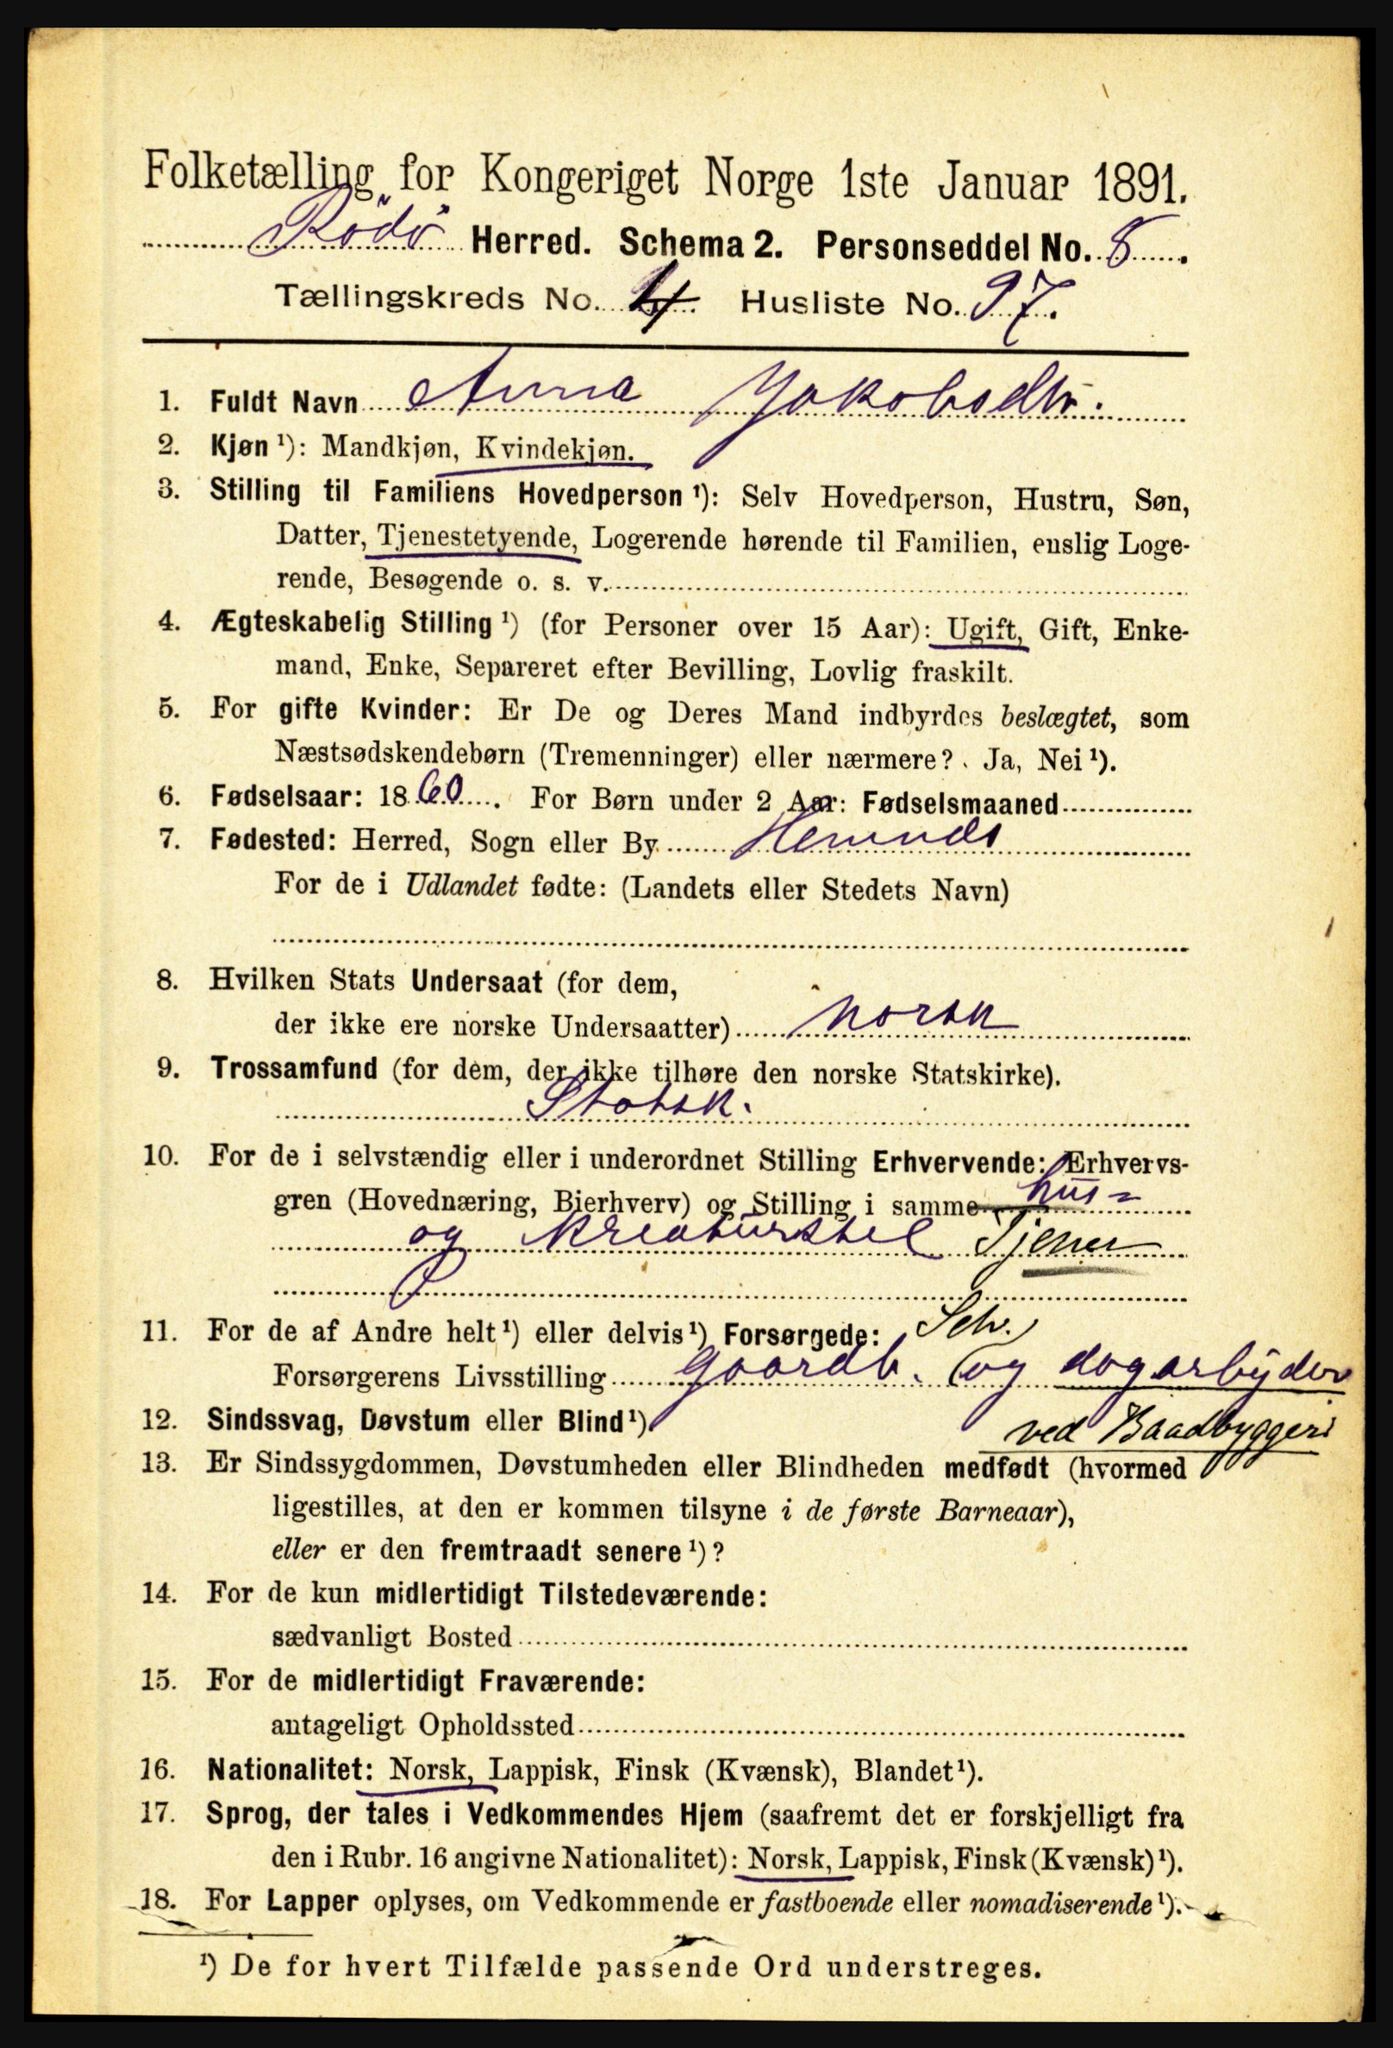 Folketælling for Kongeriget Norge 1ste Januar 1891.
Rödö Herred. Schema 2. Personseddel No. 8.
Tællingskreds No. 4. Husliste No. 97.
1. Fuldt Navn Anna Jakobsdtr.
2. Kjøn ¹): Mandkjøn, Kvindekjøn.
3. Stilling til Familiens Hovedperson ¹): Selv Hovedperson, Hustru, Søn,
Datter, Tjenestetyende, Logerende hørende til Familien, enslig Loge-
rende, Besøgende o. s. v.
4. Ægteskabelig Stilling ¹) (for Personer over 15 Aar): Ugift, Gift, Enke-
mand, Enke, Separeret efter Bevilling, Lovlig fraskilt.
5. For gifte Kvinder: Er De og Deres Mand indbyrdes beslægtet, som
Næstsødskendebørn (Tremenninger) eller nærmere? Ja, Nei ¹).
6. Fødselsaar: 1860. For Børn under 2 Aar: Fødselsmaaned
7. Fødested: Herred, Sogn eller By Hemnds
For de i Udlandet fødte: (Landets eller Stedets Navn)
8. Hvilken Stats Undersaat (for dem,
der ikke ere norske Undersaatter) norsk
9. Trossamfund (for dem, der ikke tilhøre den norske Statskirke).
Statsk.
10. For de i selvstændig eller i underordnet Stilling Erhvervende: Erhvervs-
gren (Hovednæring, Bierhverv) og Stilling i samme hus-
og kreaturstel Tjener
11. For de af Andre helt ¹) eller delvis ¹) Forsørgede: Selv.
Forsørgerens Livsstilling Gaardb. og dagarbyder
12. Sindssvag, Døvstum eller Blind ¹) ved Baadbyggeri
13. Er Sindssygdommen, Døvstumheden eller Blindheden medfødt (hvormed
ligestilles, at den er kommen tilsyne i de første Barneaar),
eller er den fremtraadt senere ¹)?
14. For de kun midlertidigt Tilstedeværende:
sædvanligt Bosted
15. For de midlertidigt Fraværende:
antageligt Opholdssted
16. Nationalitet: Norsk, Lappisk, Finsk (Kvænsk), Blandet ¹).
17. Sprog, der tales i Vedkommendes Hjem (saafremt det er forskjelligt fra
den i Rubr. 16 angivne Nationalitet): Norsk, Lappisk, Finsk (Kvænsk) ¹).
18. For Lapper oplyses, om Vedkommende er fastboende eller nomadiserende ¹).
¹) De for hvert Tilfælde passende Ord understreges.